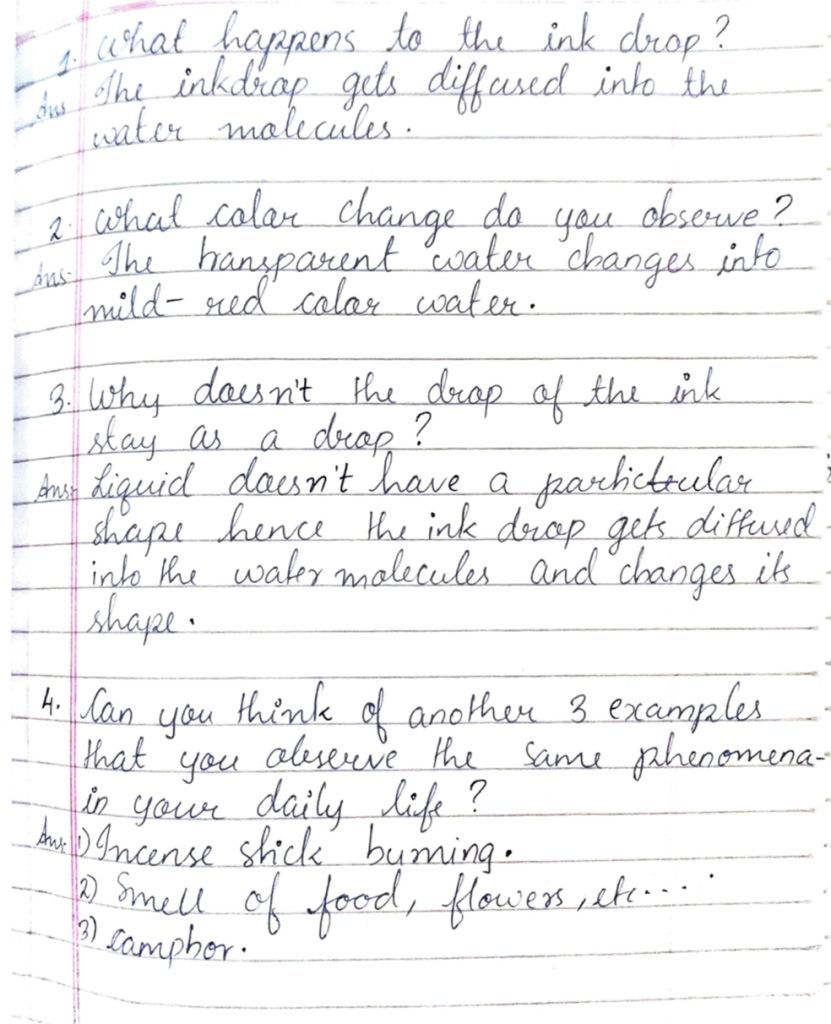 1. What happens to the ink drop?
Ans The inkdrop gets diffused into the
water molecules.
2. What color change do you observe?
Ans- The transparent water changes into
mild- red color water.
3. Why doesn't the drop of the ink
stay as a drop?
Ans:- Liquid doesn't have a particular
shape hence the ink drop gets diffused
into the water molecules and changes its
shape.
4. Can you think of another 3 examples
that you observe the same phenomena-
in your daily life?
Ans: 1) Incense stick burning.
2) Smell of food, flowers, etc....
3) camphor.